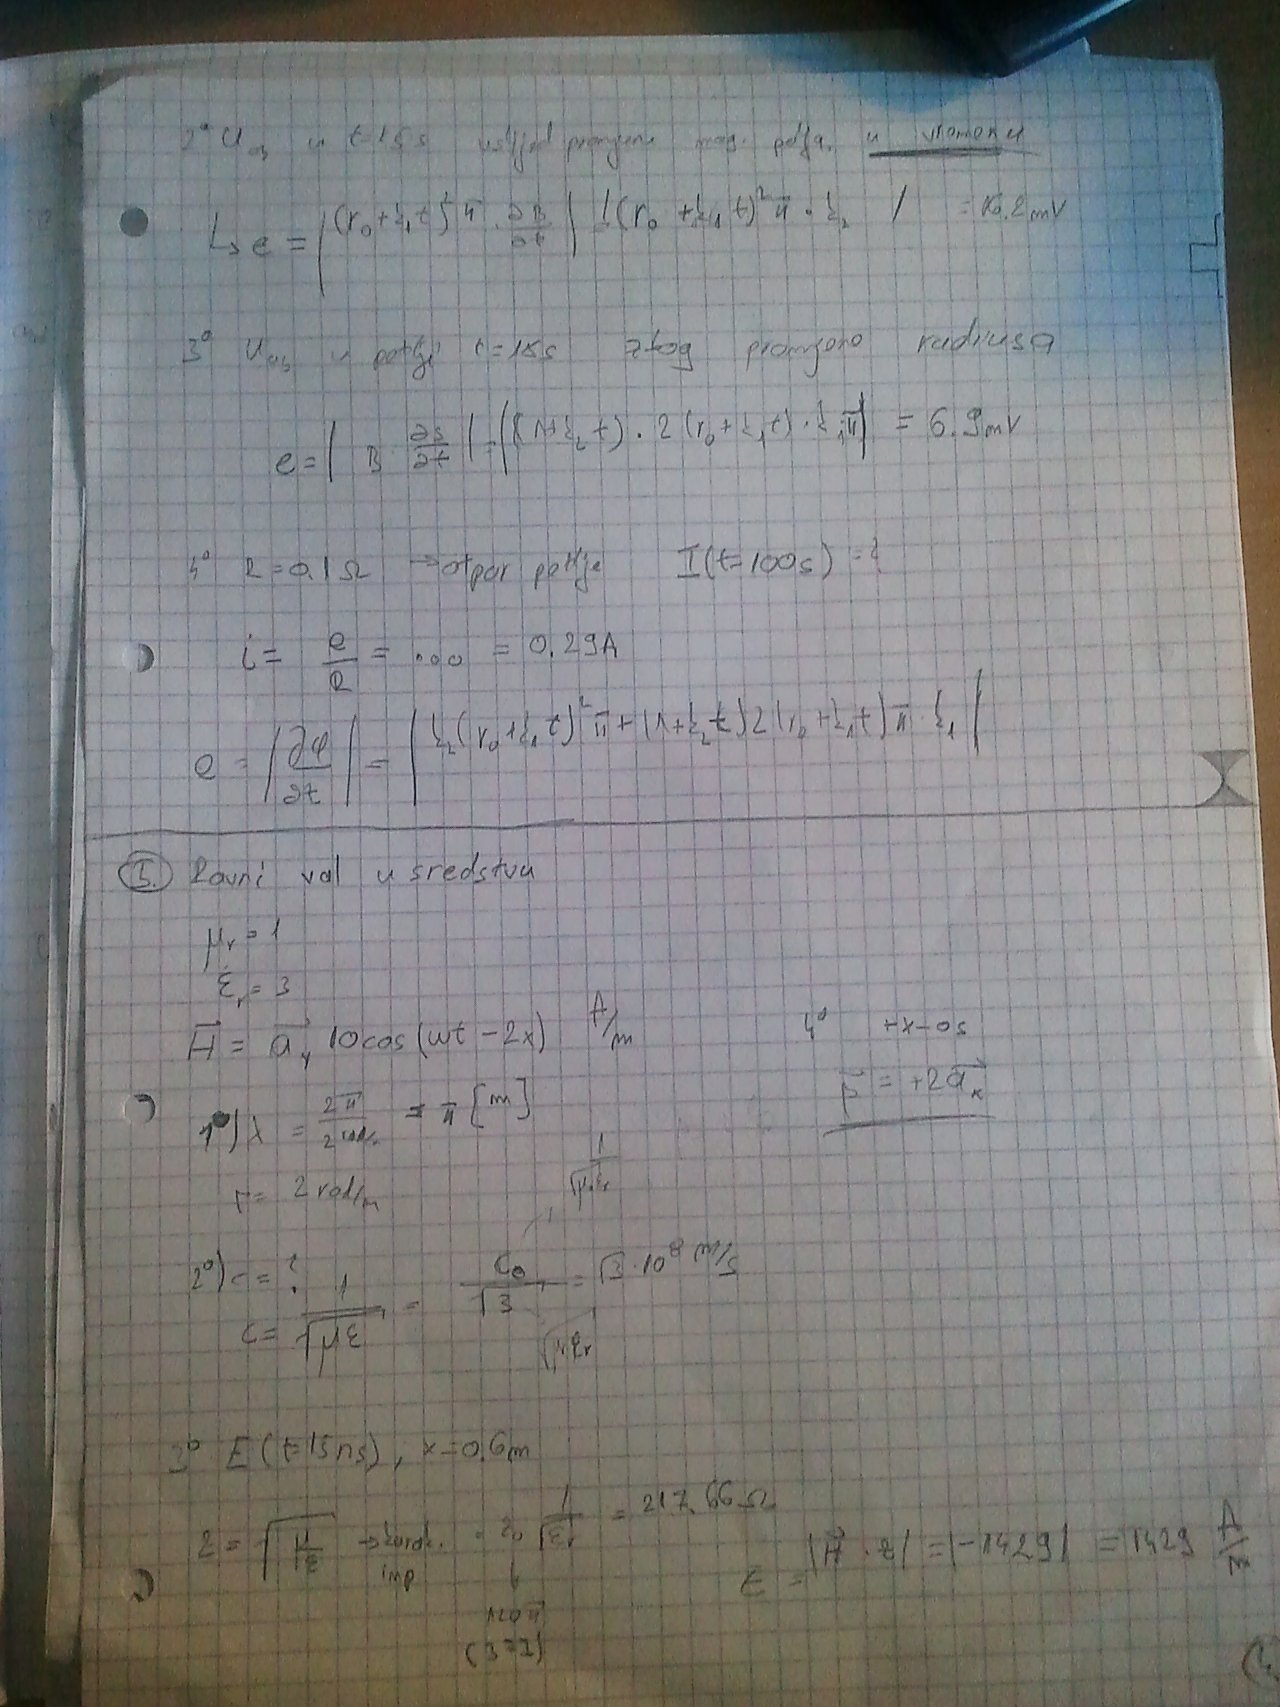 2° U_ab u t=15s uslijed promjene mag. polja, u vremenu
↳ e = |(r₀+k₁t)²π · ∂B/∂t| = |(r₀+k₁t)²π · k₂| = 10.2mV
3° U_ab u petlji t=15s zbog promjene radiusa
e = |B ∂S/∂t| = |(1+k₂t) · 2(r₀+k₁t) · k₁π| = 6.9mV
4° R=0.1Ω → otpor petlje I(t=100s) = ?
i = e/R = ... = 0.29A
e = |∂φ/∂t| = |k₂(r₀+k₁t)²π + (1+k₂t)2(r₀+k₁t)π · k₁|
5. Ravni val u sredstvu
μr = 1
εr = 3
H⃗ = a⃗y 10cos(ωt - 2x) A/m
4° +x-os
β⃗ = +2a⃗x
1°) λ = 2π/2 rad/m = π [m]
= 2 rad/m
1/√μrεr
2°) c = ?
c = 1/√με = c₀/√3 = √3·10⁸ m/s
√μrεr
3° E(t=15ns), x=0.6m
Z = √μ/ε → karak. imp = Z₀ 1/√εr = 217.66Ω
120π
E = |H⃗ · Z| = |-1429| = 1429 A/m